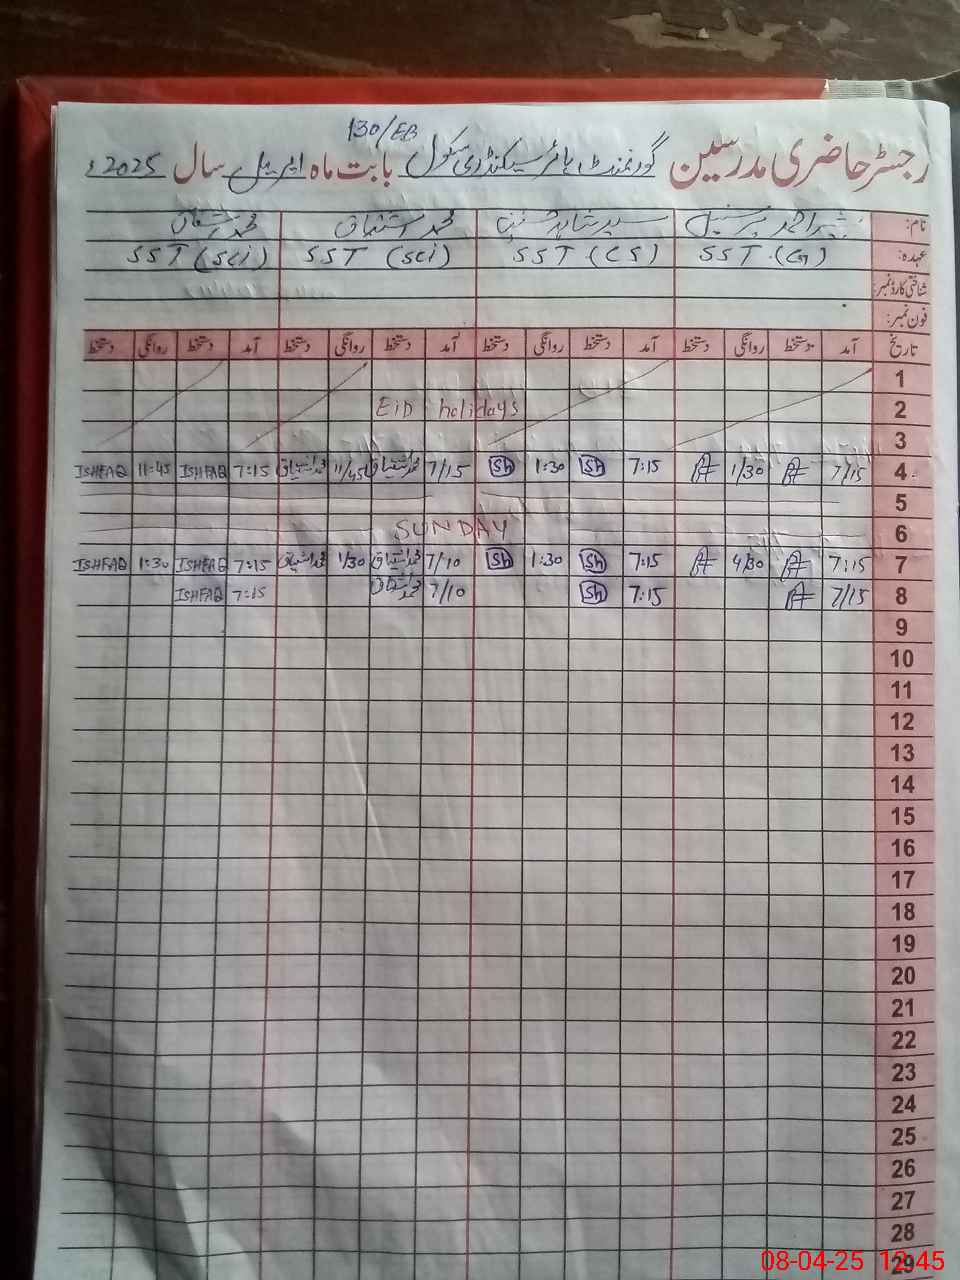 130/EB
رجسٹر حاضری مدرسین گورنمنٹ ہائر سیکنڈری سکول بابت ماہ اپریل سال 2025ء
نام: محمد اشتیاق محمد اشفاق
عہدہ: SST (G) SST (CS) SST (Sci) SST (Sci)
شناختی کارڈ نمبر:
فون نمبر:
تاریخ آمد دستخط روانگی دستخط آمد دستخط روانگی دستخط آمد دستخط روانگی دستخط آمد دستخط روانگی دستخط
1
2 EiD holidays
3
4 7/15 1/30 7:15 Sh 1:30 Sh 7/15 محمد اشتیاق 11/45 محمد اشتیاق 7:15 ISHFAQ 11:45 ISHFAQ
5
6 SUNDAY
7 7:15 4/30 7:15 Sh 1:30 Sh 7/10 محمد اشتیاق 1/30 محمد اشتیاق 7:15 ISHFAQ 1:30 ISHFAQ
8 7/15 7:15 Sh 7/10 محمد اشتیاق 7:15 ISHFAQ
9
10
11
12
13
14
15
16
17
18
19
20
21
22
23
24
25
26
27
28
29
08-04-25 12:45